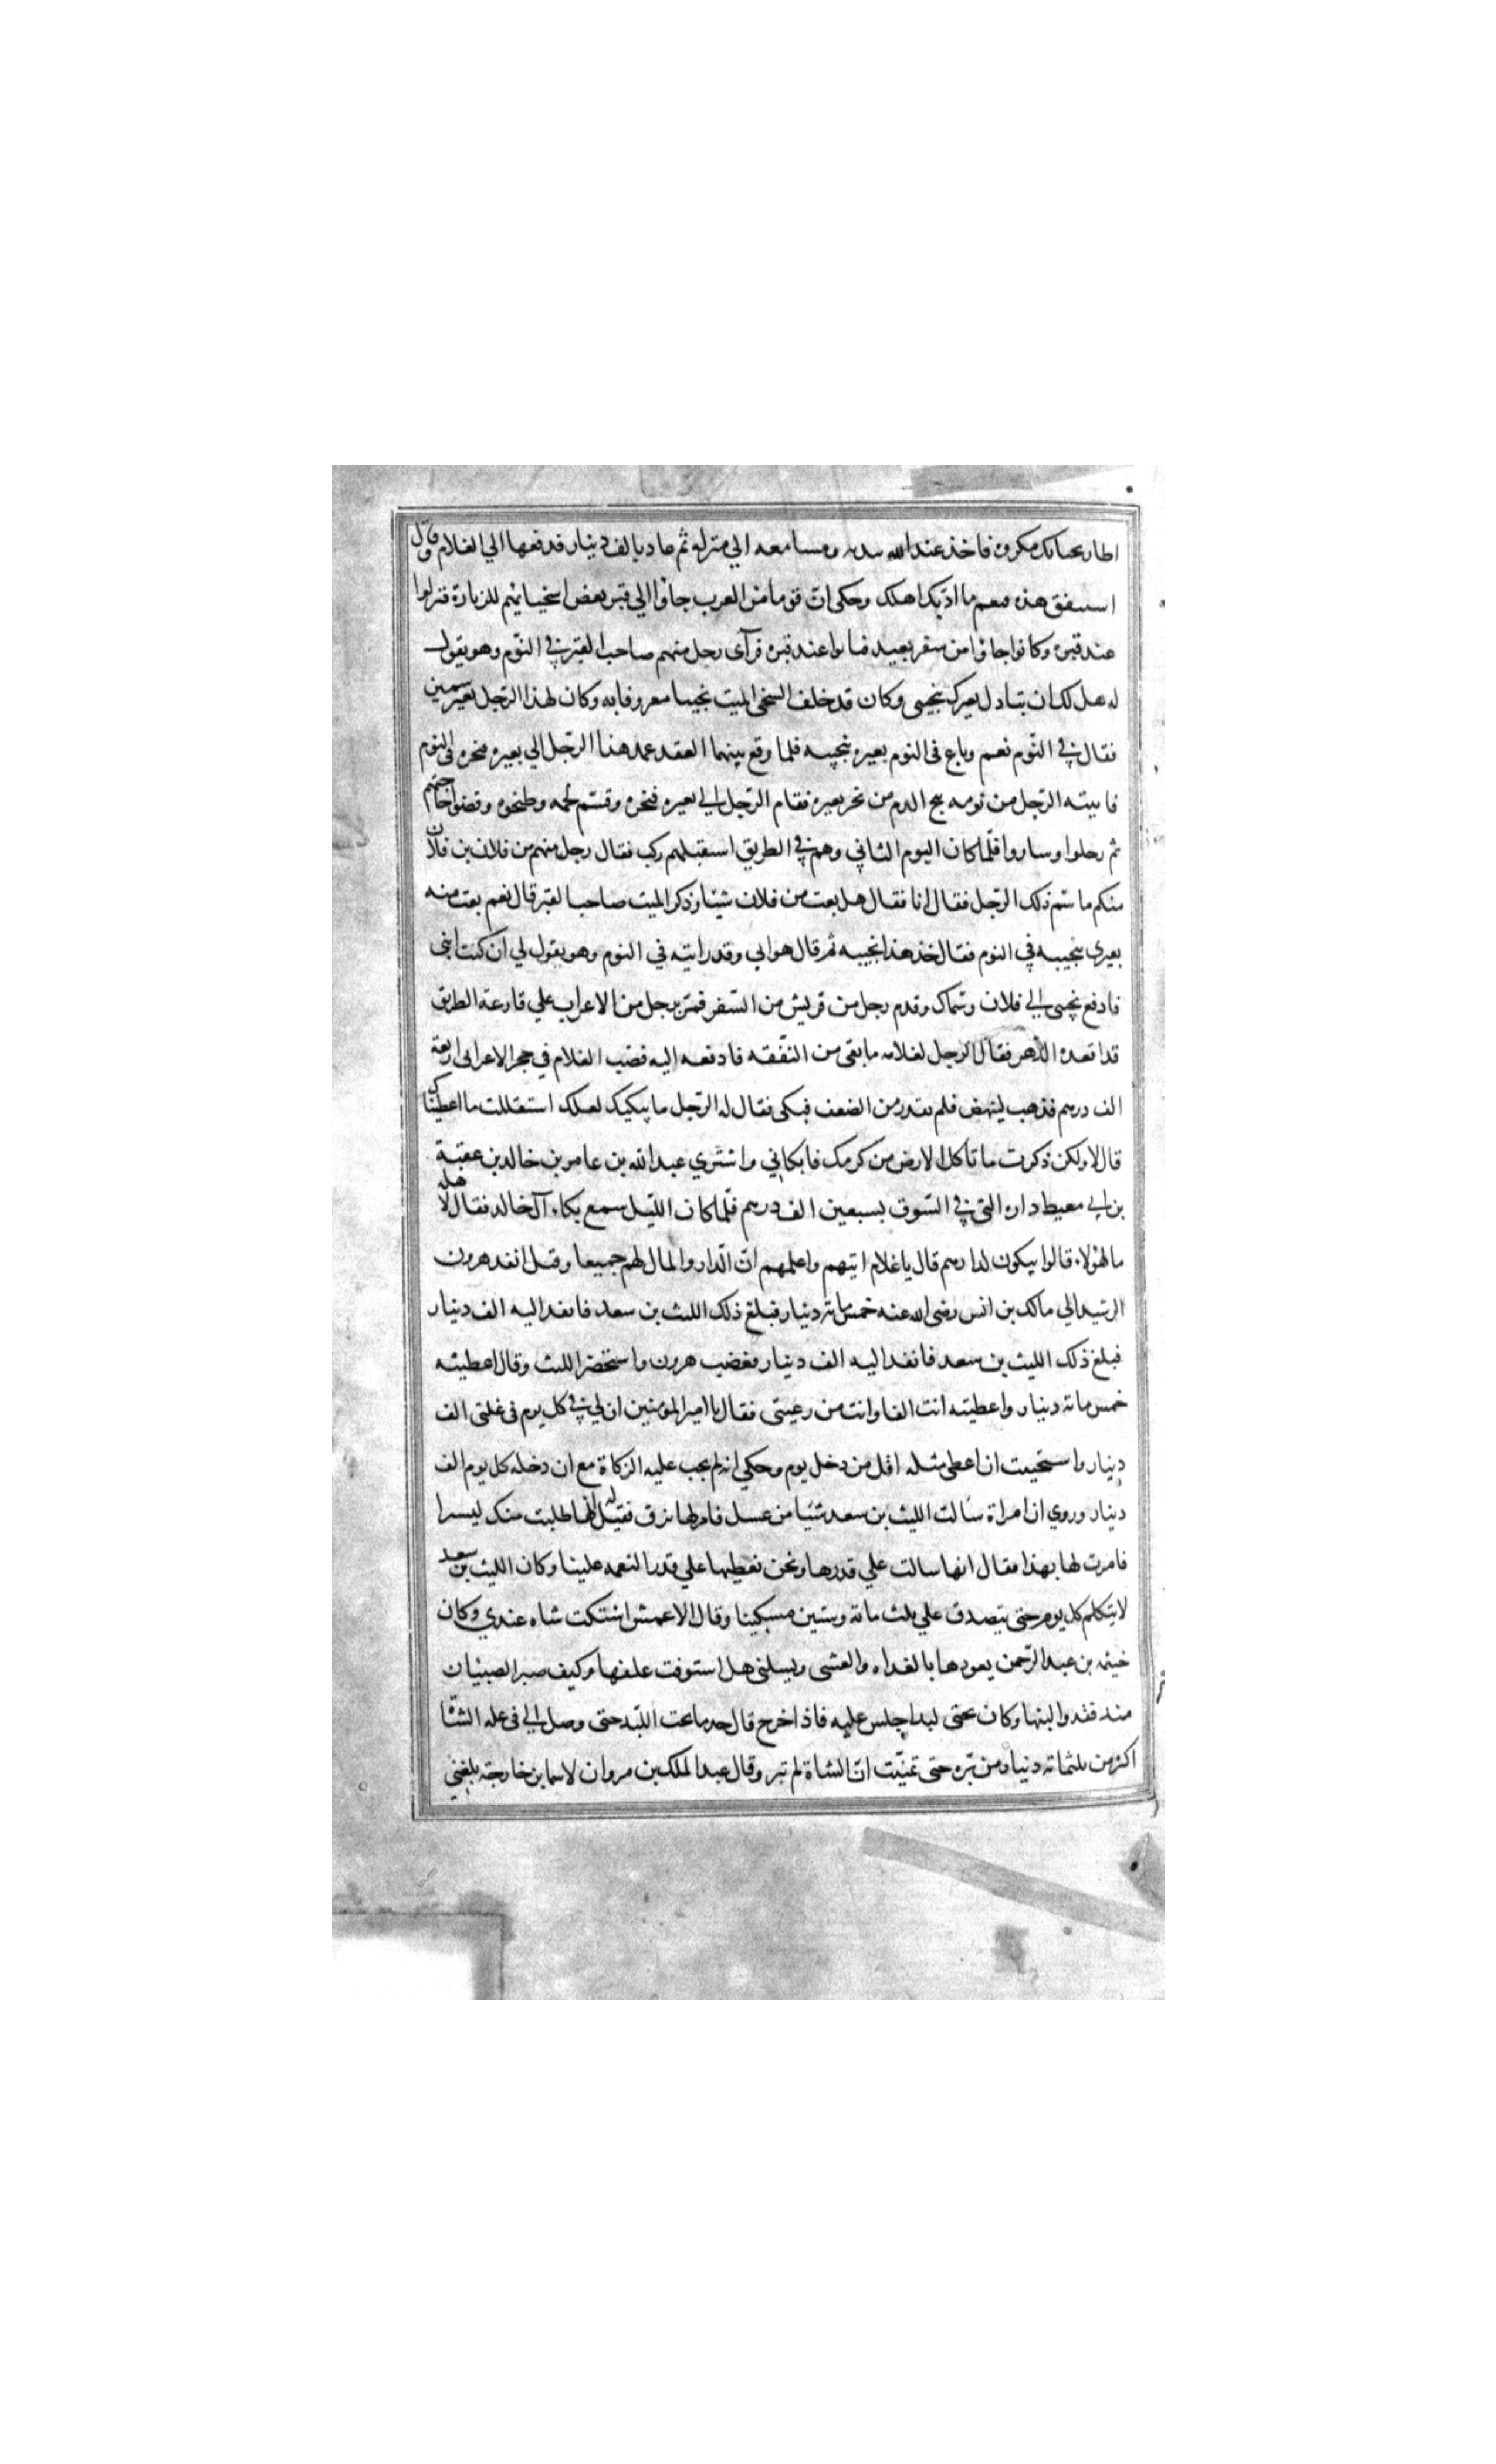 اطار بجنابك مكروه فاخذ عند الله بيده ومشيا معه الي منزله ثم عاد بالف دينار فدفعها الي الغلام وقال
استنفق هذه فنعم ما ادبك اهلك وحكي انّ قوما من العرب جاؤا الي قبر بعض اسخيائهم للزيارة فنزلوا
عند قبره وكانوا جاؤا من سفر بعيد فباتوا عند قبره فرآى رجل منهم صاحب القبر في النّوم وهو يقول
له هل لك ان تبادل بعيرك بنجيبي وكان قد خلف السخي الميت نجيبا معروفا به وكان لهذا الرّجل بعير سمين
فقال في النّوم نعم وباع في النوم بعيره بنجيبه فلما وقع بينهما العقد عمد هذا الرّجل الي بعيره فنحره في النوم
فانتبه الرّجل من نومه يثج الدم من نحر بعيره فقام الرّجل الي بعيره فنحره وقسّم لحمه وطبخوه وقضوا حاجتهم
ثم رحلوا وساروا فلّما كان اليوم الثاني وهم في الطريق استقبلهم ركب فقال رجل منهم من فلان بن فلان
منكم باسم ذلك الرّجل فقال انا فقال هل بعت من فلان شيئا وذكر الميت صاحب القبر قال نعم بعت منه
بعيري بنجيبه في النوم فقال خذ هذا نجيبه ثم قال هو ابي وقد رايته في النوم وهو يقول لي ان كنت ابني
فادفع نجيبي الي فلان وسمّاك وقدم رجل من قريش من السّفر فمرّ برجل من الاعراب علي قارعة الطريق
قد اقعده الدّهر فقال الرجل لغلامه ما بقي من النّفقه فادفعه اليه فصب الغلام في حجر الاعرابي اربعة
الف درهم فذهب لينهض فلم يقدر من الضعف فبكي فقال له الرّجل ما يبكيك لعلك استقللت ما اعطيناك
قال لا ولكن ذكرت ما تاكل الارض من كرمك فابكاني واشتري عبد الله بن عامر بن خالد بن عقبة
بن ابي معيط داره التي في السّوق بسبعين الف درهم فلّما كان اللّيل سمع بكاء آل خالد فقال لاهله
ما لهؤلاء قالوا يبكون لدارهم قال يا غلام ايتهم واعلمهم انّ الّدار والمال لهم جميعا وقيل انفذ هرون
الرشيد الي مالك بن انس رضي الله عنه خمس مائة دينار فبلغ ذلك الليث بن سعد فانفذ اليه الف دينار
فبلغ ذلك الليث بن سعد فانفذ اليه الف دينار فغضب هرون واستحضر الليث وقال اعطيته
خمس مائة دينار واعطيته انت الفا وانت من رعيتي فقال يا امير المؤمنين ان لي في كل يوم في غلتي الف
دينار واستحييت ان اعطي مثله اقل من دخل يوم وحكي انه لم يجب عليه الزكاة مع ان دخله كل يوم الف
دينار وروي ان امراة سالت الليث بن سعد شئيا من عسل فامر لها بزق فقيل له انها طلبت منك يسيرا
فامرت لها بهذا فقال انها سالت علي قدرها ونحن نعطيها علي قدر النعمه علينا وكان الليث بن سعد
لا يتكلم كل يوم حتى يتصدق علي ثلث مائة وستين مسكينا وقال الاعمش اشتكت شاه عندي وكان
خيثمه بن عبد الرّحمن يعودها بالغداه والعشي ويسلني هل استوفت علفها وكيف صبر الصبيان
منذ فقدوا لبنها وكان تحتي لبد اجلس عليه فاذا خرج قال خذ ما تحت اللبّد حتى وصل الي في عله الشاة
اكثر من ثلثمائة دينار من برّه حتى تمنيّت انّ الشاة لم تبر وقال عبد الملك بن مروان لاسما بن خارجة بلغني